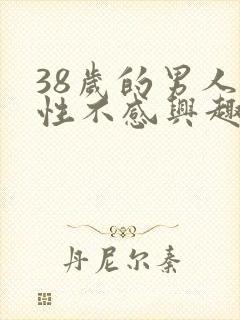 38歲的男人
性不感興趣
丹尼尔秦